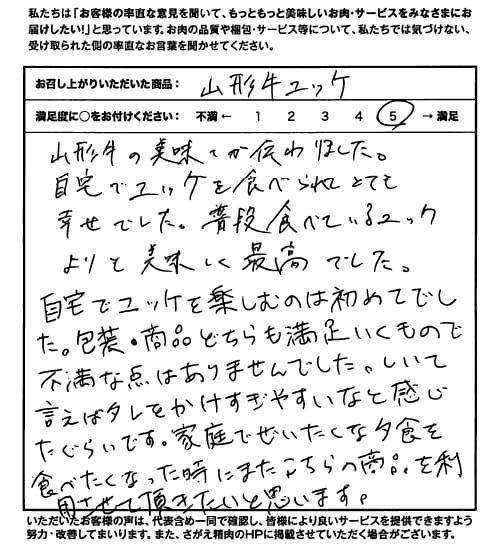 私たちは「お客様の率直な意見を聞いて、もっともっと美味しいお肉・サービスをみなさまにお
届けしたい!」と思っています。お肉の品質や梱包・サービス等について、私たちでは気づけない、
受け取られた側の率直なお言葉を聞かせてください。
お召し上がりいただいた商品: 山形牛ユッケ
満足度に○をお付けください: 不満 ← 1 2 3 4 5 → 満足
山形牛の美味さが伝わりました。
自宅でユッケを食べられとても
幸せでした。普段食べているユック
よりと美味しく最高でした。
自宅でユッケを楽しむのは初めてでし
た。包装・商品どちらも満足いくもので
不満な点はありませんでした。しいて
言えばタレをかけすぎやすいなと感じ
たぐらいです。家庭でぜいたくな夕食を
食べたくなった時にまたこちらの商品を利
用させて頂きたいと思います。
いただいたお客様の声は、代表含め一同で確認し、皆様により良いサービスを提供できますよう
努力・改善してまいります。また、さがえ精肉のHPに掲載させていただく場合がございます。